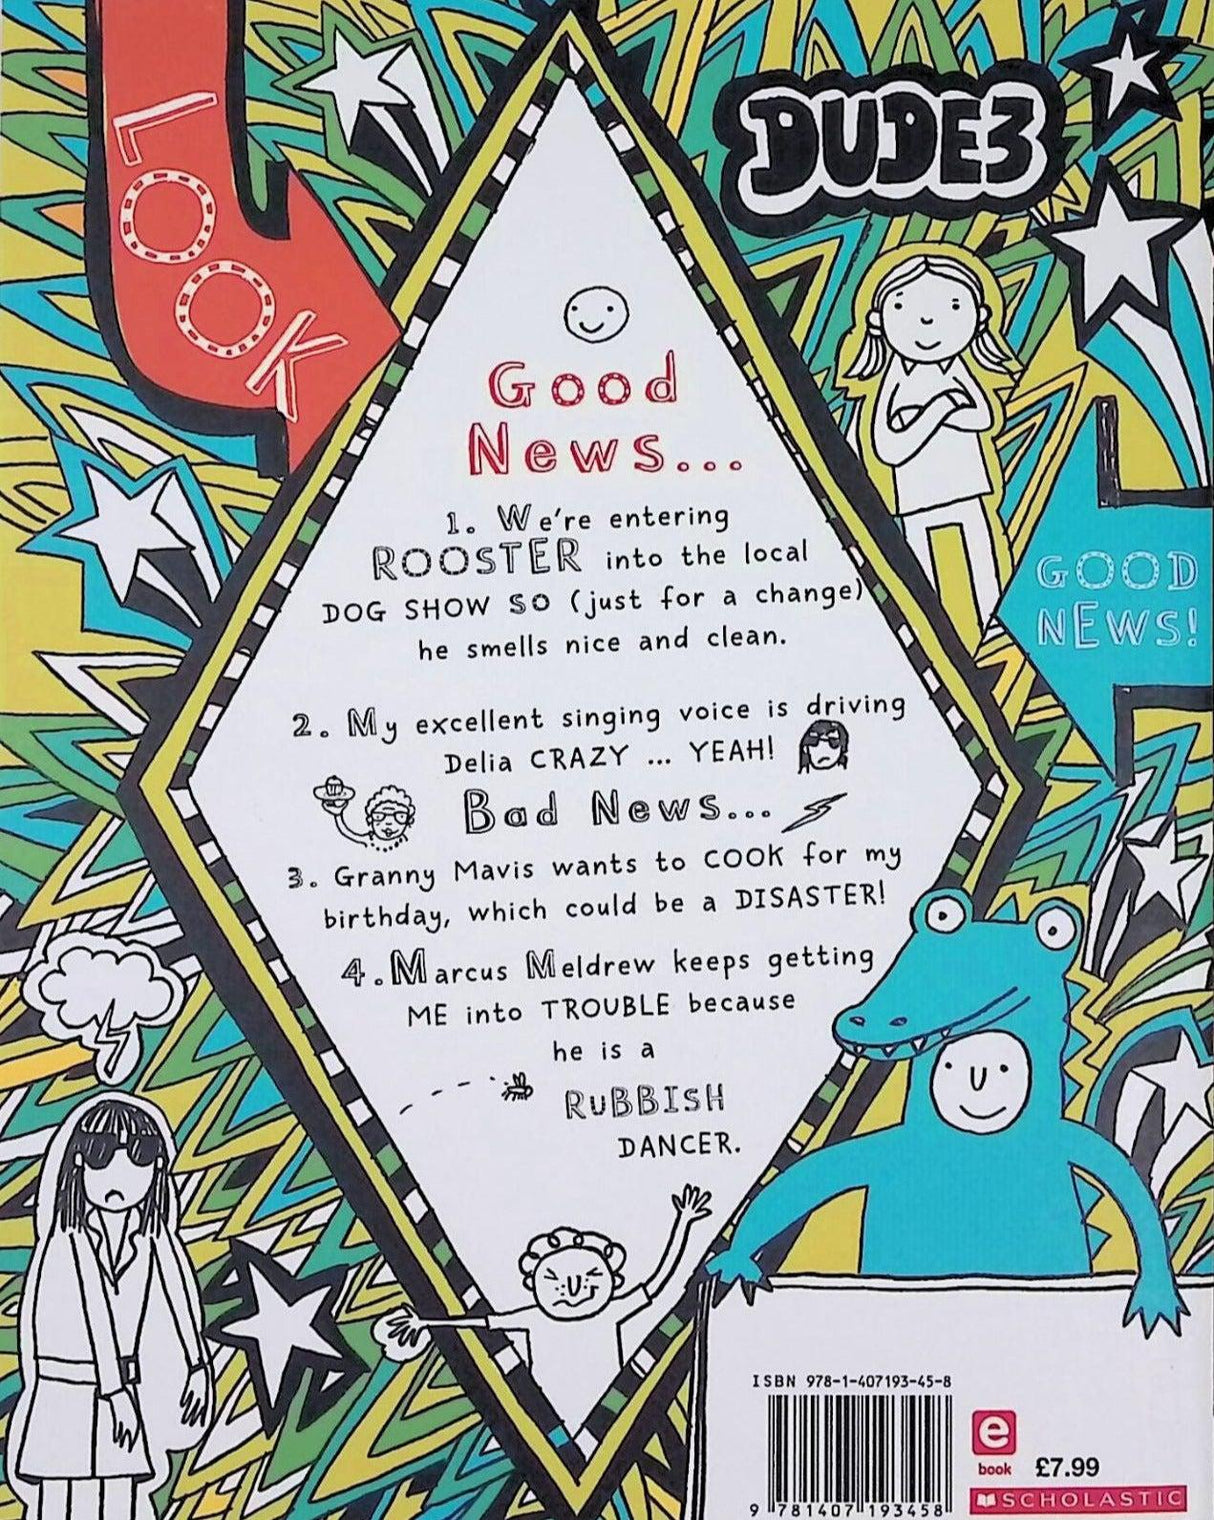 LOOK
DUDE3
Good
News...
1. We're entering
ROOSTER into the local
DOG SHOW SO (just for a change)
he smells nice and clean.
2. My excellent singing voice is driving
Delia CRAZY ... YEAH!
Bad News...
3. Granny Mavis wants to COOK for my
birthday, which could be a DISASTER!
4. Marcus Meldrew keeps getting
ME into TROUBLE because
he is a
RUBBISH
DANCER.
GOOD
NEWS!
ISBN 978-1-407193-45-8
9 781407 193458
e
book
£7.99
SCHOLASTIC